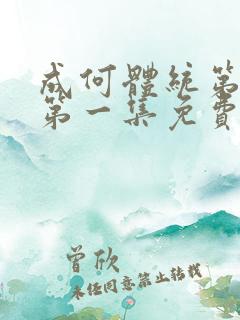 成何體統第
第一集免費
曾欣
未经同意禁止转载